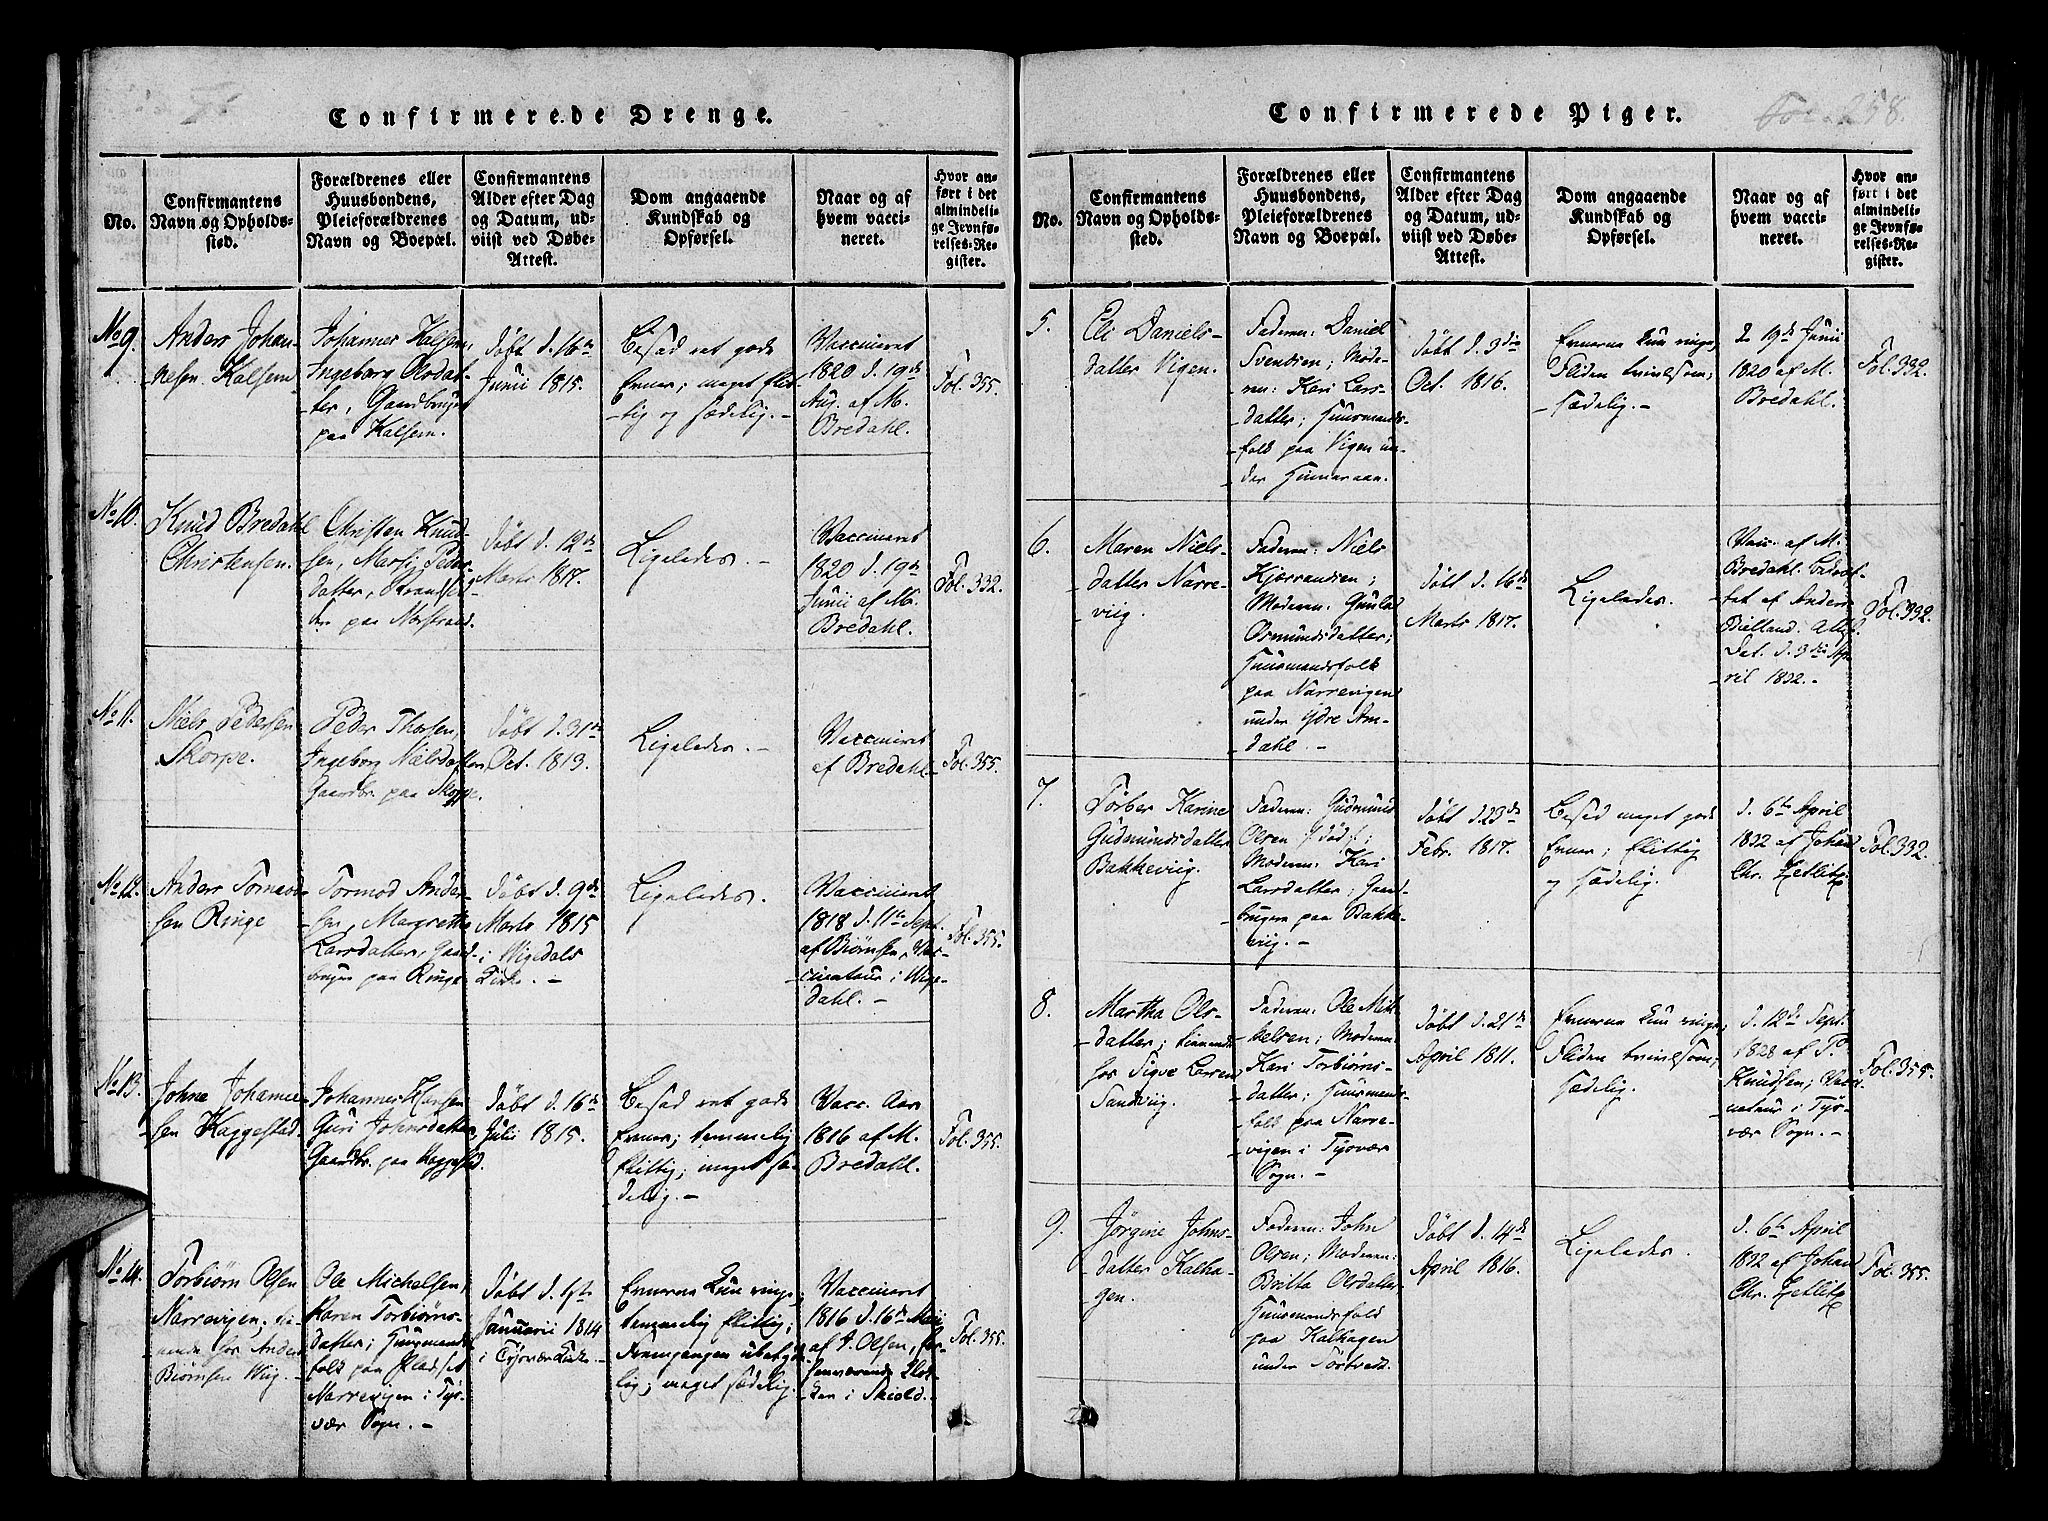 Confirmerede Drenge.
No.
Confirmantens
Navn og Opholds-
sted.
Forældrenes eller
Huusbondens,
Pleieforældrenes
Navn og Boepæl.
Confirmantens
Alder efter Dag
og Datum, ud-
viist ved Døbe-
Attest.
Dom angaaende
Kundskab og
Opførsel.
Naar og af
hvem vacci-
neret.
Hvor an-
ført i det
almindeli-
ge Jevnfø-
relses-Re-
gister.
No 9.
Anders Johan-
nesen Kalsem
Johannes Kalsem,
Ingeborg Olsdat-
ter, Gaardbruger
paa Kalsem.
døbt d. 16de
Junii 1815.
Besad ret gode
Evner; meget flit-
tig og sædelig. -
Vaccineret
1820 d. 19de
Aug. af M.
Bredahl.
Fol. 355.
No 10.
Knud Bredahl
Christensen.
Christen Knud-
sen, Marti Peder-
datter, Strandsid-
der paa Norstrand.
døbt d. 12de
Marts 1817.
Ligeledes. -
Vaccineret
1820 d. 19de
Junii af M.
Bredahl.
Fol. 332.
No 11.
Niels Pedersen
Skorpe.
Peder Thorsen,
Ingeborg Nielsdatter,
Gaardbr. paa Skorpe.
døbt d. 31te
Oct. 1813.
Ligeledes. -
Vaccineret
af Bredahl.
Fol. 355.
No 12.
Anders Tormod-
sen Ringe
Tormod Ander-
sen, Margrethe
Larsdatter, Gaard-
bruger paa Ringe
døbt d. 9de
Marts 1815
i Wigedals
Kirke. -
Ligeledes.
Vaccineret
1818 d. 11te Sept.
af Biørnsen, Vac-
cinateur i Wige-
dahl. -
Fol. 355.
No 13.
Johne Johanne-
sen Kaggestad.
Johannes Hansen
Guri Johnsdatter,
Gaardbr. paa Kaggestad.
døbt d. 16de
Julii 1815.
Besad ret gode
Evner; temmelig
flittig; meget sæ-
delig. -
Vacc. Aar
1816 af M.
Bredahl.
Fol. 355.
No 14.
Torbiørn Olsen
Narrevigen,
hos Anders
Biørnsen Wiig. -
Ole Michelsen,
Karen Torbiørns-
datter; Huusmands-
folk paa Pladset
Narrevigen i Tys-
vær Sogn. -
døbt d. 1ste
Januarii 1814
i Tysvær Kirke. -
Evnerne kun ringe,
temmelig flittig;
Fremgangen ubetyde-
lig; meget sædelig.
Vaccineret
1816 d. 16de Maii
af A. Olsen, for-
henværende Klok-
ker i Skiold. -
Fol. 355.
Confirmerede Piger.
Fol. 258.
No.
Confirmantens
Navn og Opholds-
sted.
Forældrenes eller
Huusbondens,
Pleieforældrenes
Navn og Boepæl.
Confirmantens
Alder efter Dag
og Datum, ud-
viist ved Døbe-
Attest.
Dom angaaende
Kundskab og
Opførsel.
Naar og af
hvem vacci-
neret.
Hvor an-
ført i det
almindeli-
ge Jevnfø-
relses-Re-
gister.
5.
Eli Daniels-
datter Vigen.
Faderen: Daniel
Svendsen; Mode-
ren: Kari Lars-
datter; Huusmands-
folk paa Vigen un-
der Gunnaraan.
døbt d. 3die
Oct. 1816.
Evnerne kun ringe,
Fliden tvivlsom;
sædelig. -
d. 19de Junii
1820 af M.
Bredahl.
Fol. 332.
6.
Maren Niels-
datter Narre-
viig.
Faderen: Niels
Kjærrandsen;
Moderen: Gunla
Osmundsdatter;
Huusmandsfolk
paa Narrevigen
under Ydre Am-
dahl. -
døbt d. 16de
Marts 1817.
Ligeledes.
Vacc. af M.
Bredahl. Bidraf-
tet af Anders
Bielland. Attest.
Dat. d. 3die Ap-
ril 1832. -
Fol. 332.
7.
Torber Karine
Gudmundsdatter
Bakkeviig.
Faderen: Gudmund
Olsen /: død :/;
Moderen: Kari
Larsdatter; Gaard-
brugere paa Bakke-
viig. -
døbt d. 23de
Febr. 1817.
Besad meget gode
Evner; flittig
og sædelig.
d. 6te April
1832 af Johan
Chr. Zetlitz.
Fol. 332.
8.
Martha Ols-
datter; tienende
hos Sigve Larsen
Sandviig.
Faderen: Ole Mik-
kelsen; Moderen
Kari Torbiørns-
datter; Huusmands-
folk paa Narre-
vigen i Tysvær
Sogn. -
døbt d. 21de
April 1811.
Evnerne kun ringe;
Fliden tvivlsom;
sædelig.
d. 12de Sept.
1828 af P.
Knudsen; Vacci-
nateur i Tys-
vær Sogn. -
Fol. 355.
9.
Jørgine Johns-
datter Kalha-
gen.
Faderen: John
Olsen; Moderen:
Britta Olsdatter
Huusmandsfolk
paa Kalhagen
under Førtvedt.
døbt d. 14de
April 1816.
Ligeledes.
d. 6te April
1832 af Johan
Chr. Zetlitz
Fol. 355.